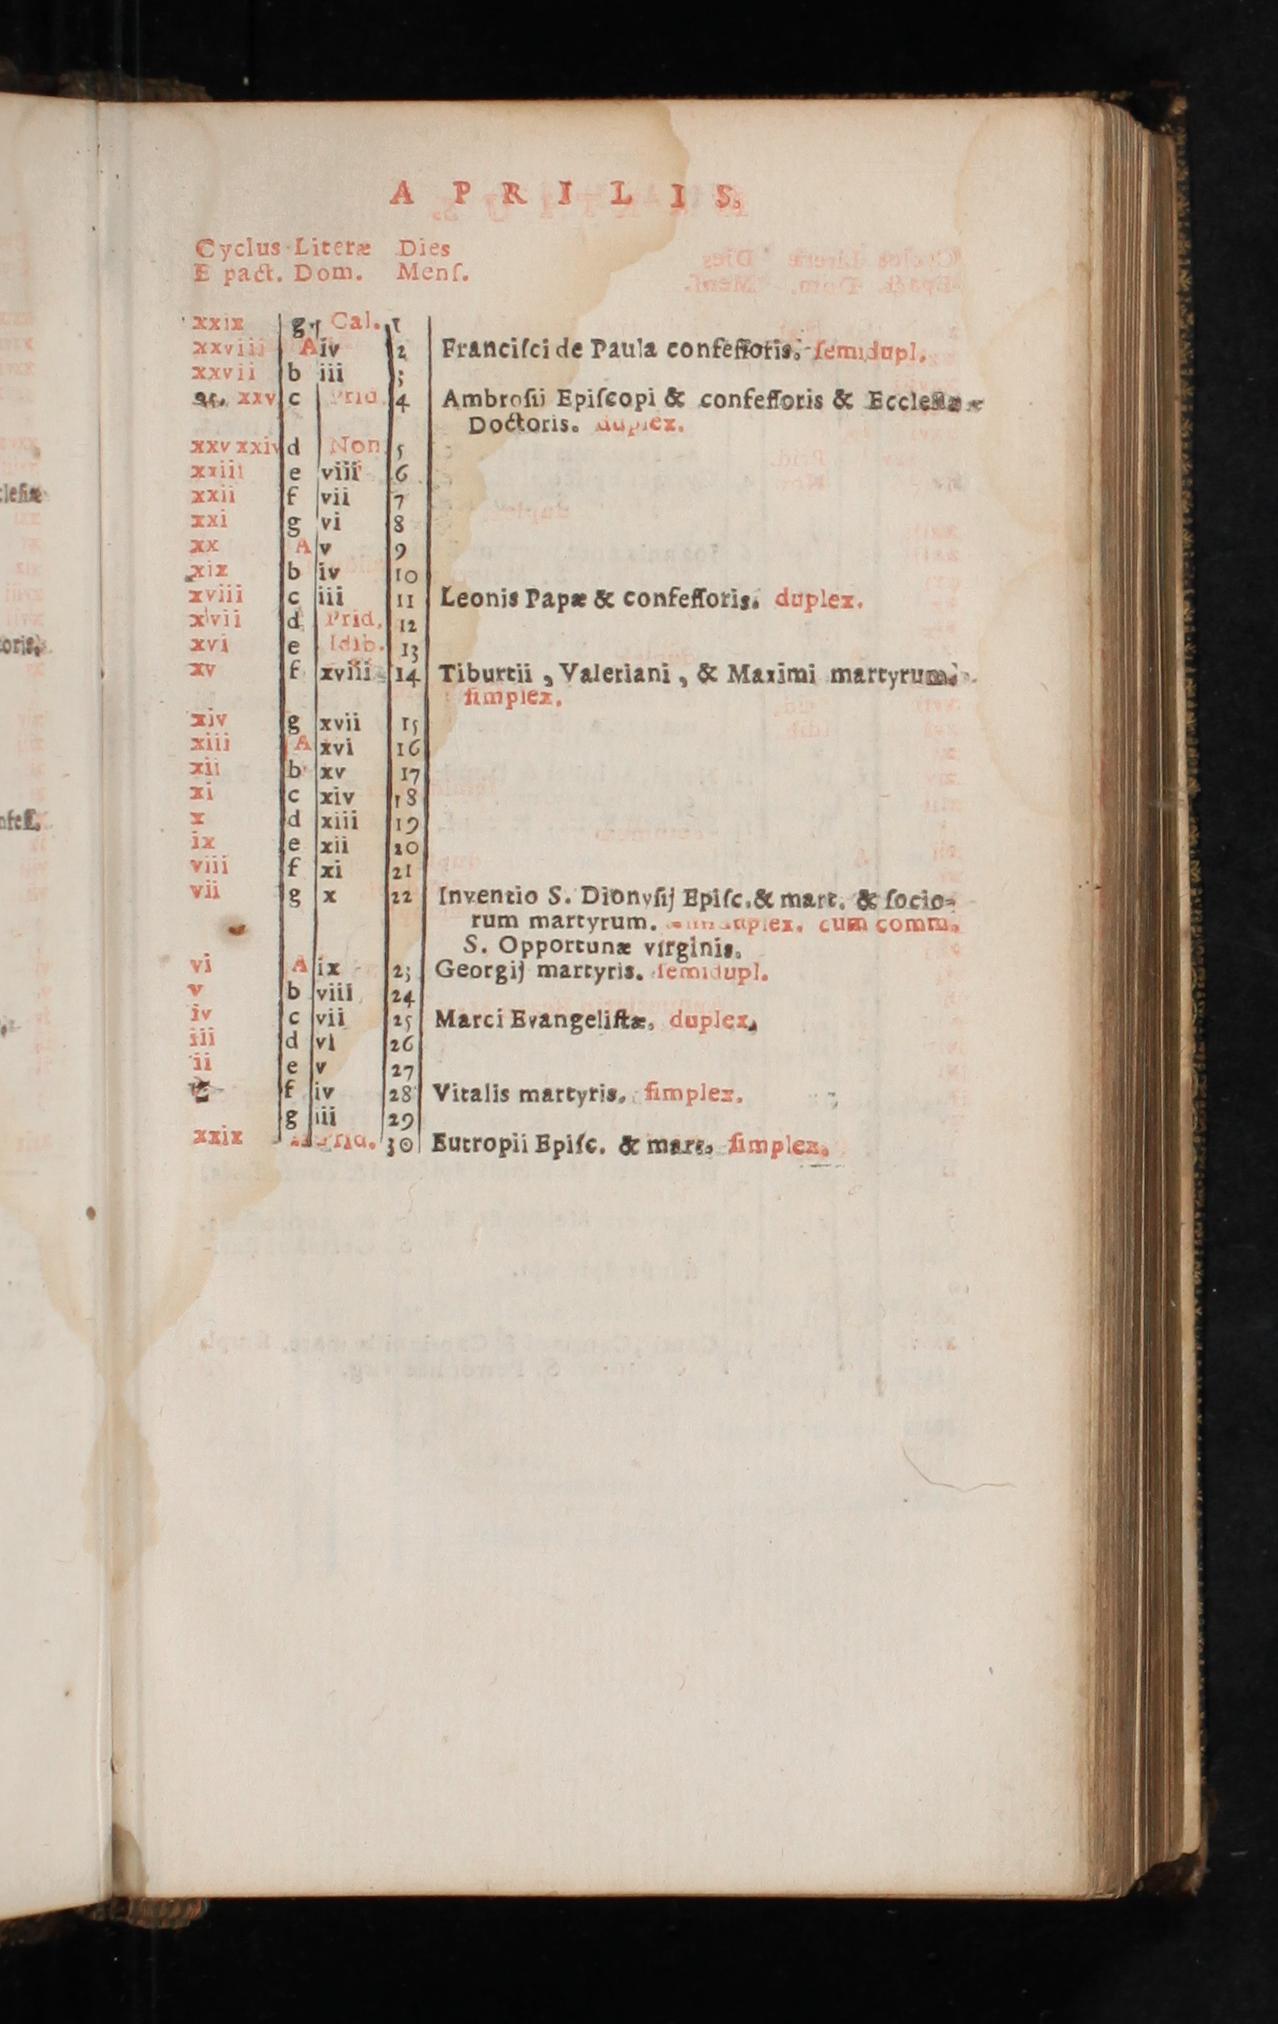 APRILIS.
Cyclus Literæ Dies
Epact. Dom. Menſ.
xxix g Cal. 1
xxviii A iv 2 Franciſci de Paula confeſſoris. ſemidupl.
xxvii b iii 3
xxv c Prid. 4 Ambroſii Epiſcopi & confeſſoris & Eccleſiæ
Doctoris. duplex.
xxv xxiv d Non. 5
xxiii e viii 6
xxii f vii 7
xxi g vi 8
xx A v 9
xix b iv 10
xviii c iii 11 Leonis Papæ & confeſſoris. duplex.
xvii d Prid. 12
xvi e Idib. 13
xv f xviii 14 Tiburtii, Valeriani, & Maximi martyrum.
ſimplex.
xiv g xvii 15
xiii A xvi 16
xii b xv 17
xi c xiv 18
x d xiii 19
ix e xii 20
viii f xi 21
vii g x 22 Inventio S. Dionyſij Epiſc. & mart. & ſocio-
rum martyrum. cum comm.
S. Opportunæ virginis.
vi A ix 23 Georgij martyris. ſemidupl.
v b viii 24
iv c vii 25 Marci Evangeliſtæ. duplex.
iii d vi 26
ii e v 27
f iv 28 Vitalis martyris. ſimplex.
g iii 29
xxix Prid. 30 Eutropii Epiſc. & mart. ſimplex.